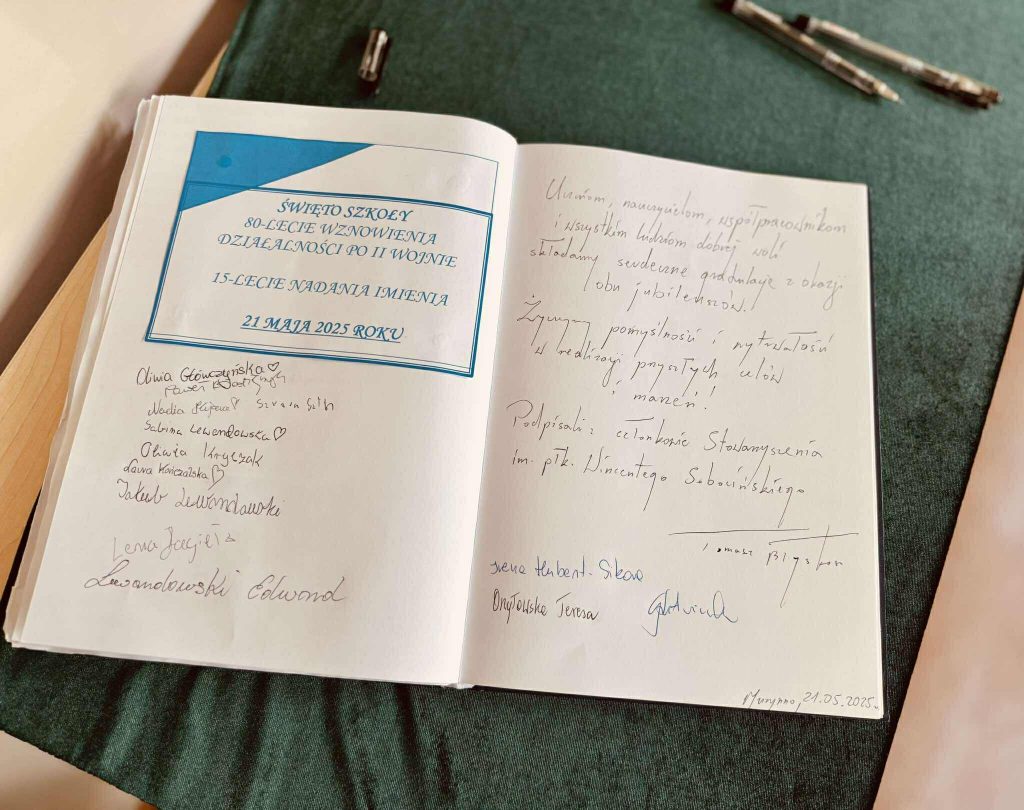 ŚWIĘTO SZKOŁY
80-LECIE WZNOWIENIA
DZIAŁALNOŚCI PO II WOJNIE
15-LECIE NADANIA IMIENIA
21 MAJA 2025 ROKU
Oliwia Główczyńska♡
Nadia ♡
Sabina Lewandowska♡
Oliwia Kryczak
Laura Kończalska♡
Jakub Lewandowski
Lena
Lewandowski Edward
Uczniom, nauczycielom, współpracownikom
i wszystkim ludziom dobrej woli
składamy serdeczne gratulacje z okazji
obu jubileuszów!
Życzymy pomyślności i wytrwałości
w realizacji przyszłych celów
i marzeń!
Podpisali: członkowie Stowarzyszenia
im. płk. Wincentego Sobocińskiego
Tomasz
Irena Hubert-Sikora
Teresa
21.05.2025r.